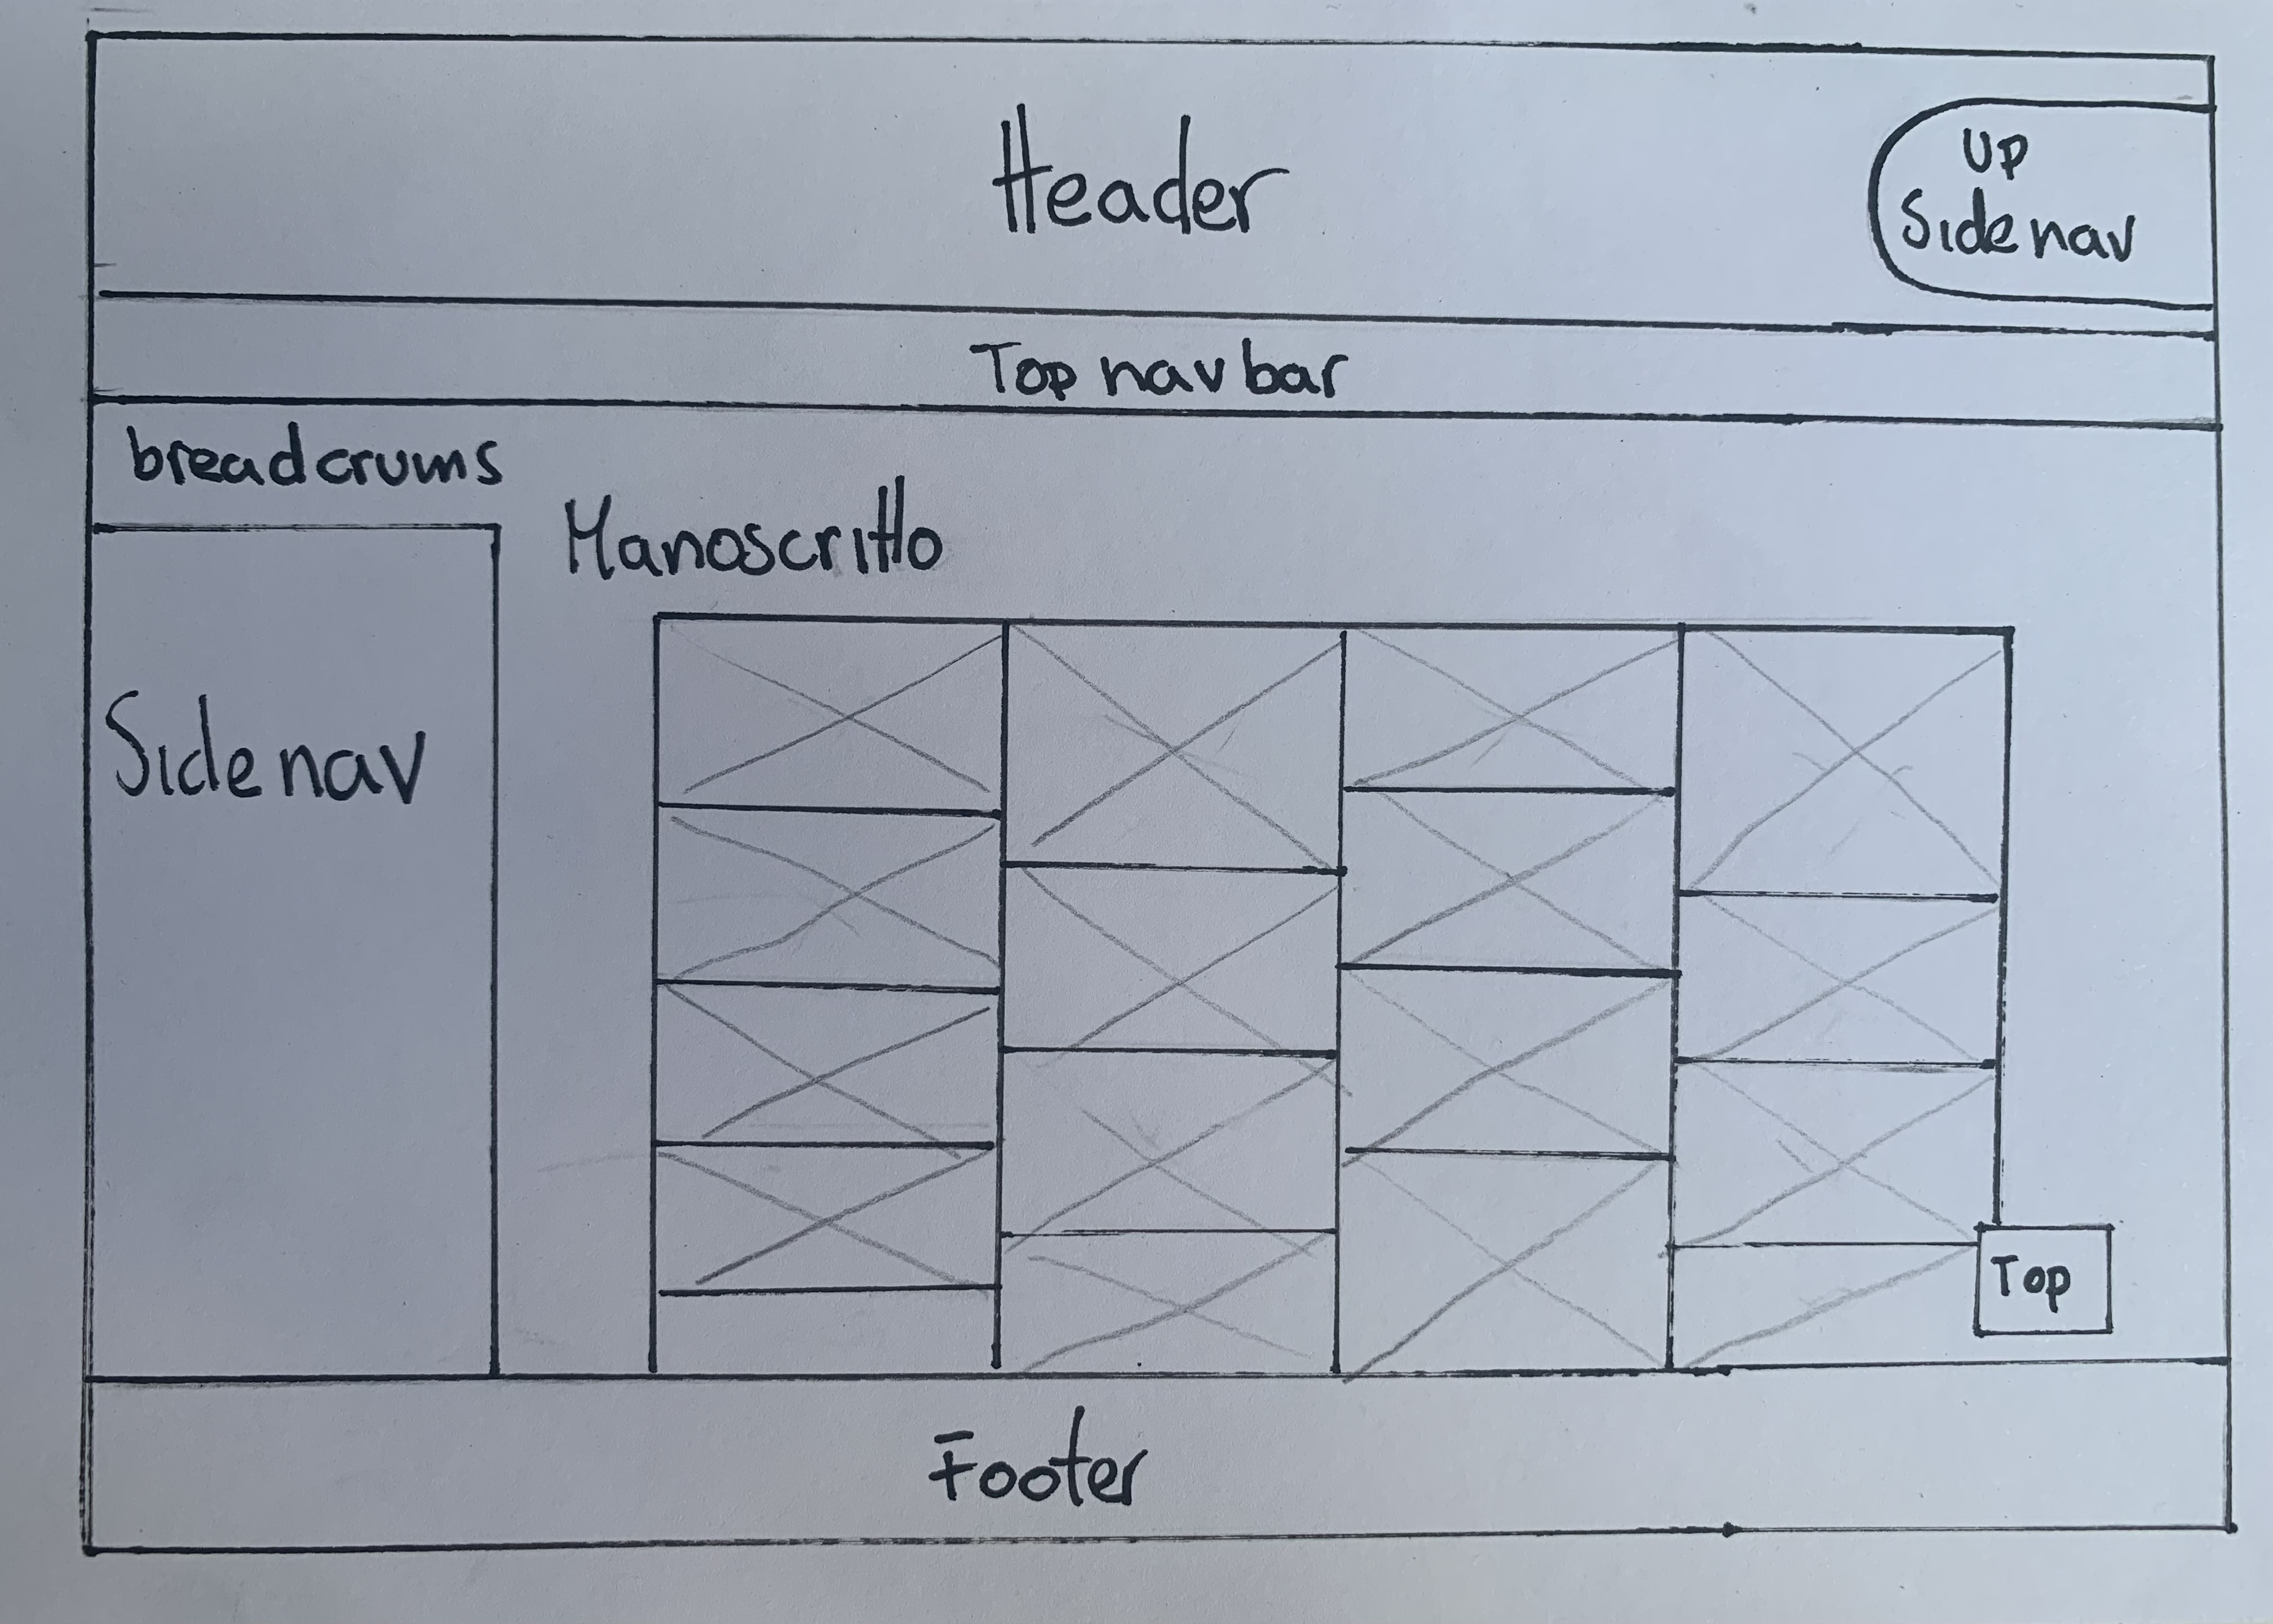 Header
UP
Side nav
Top nav bar
breadcrums
Manoscritto
Side nav
Top
Footer